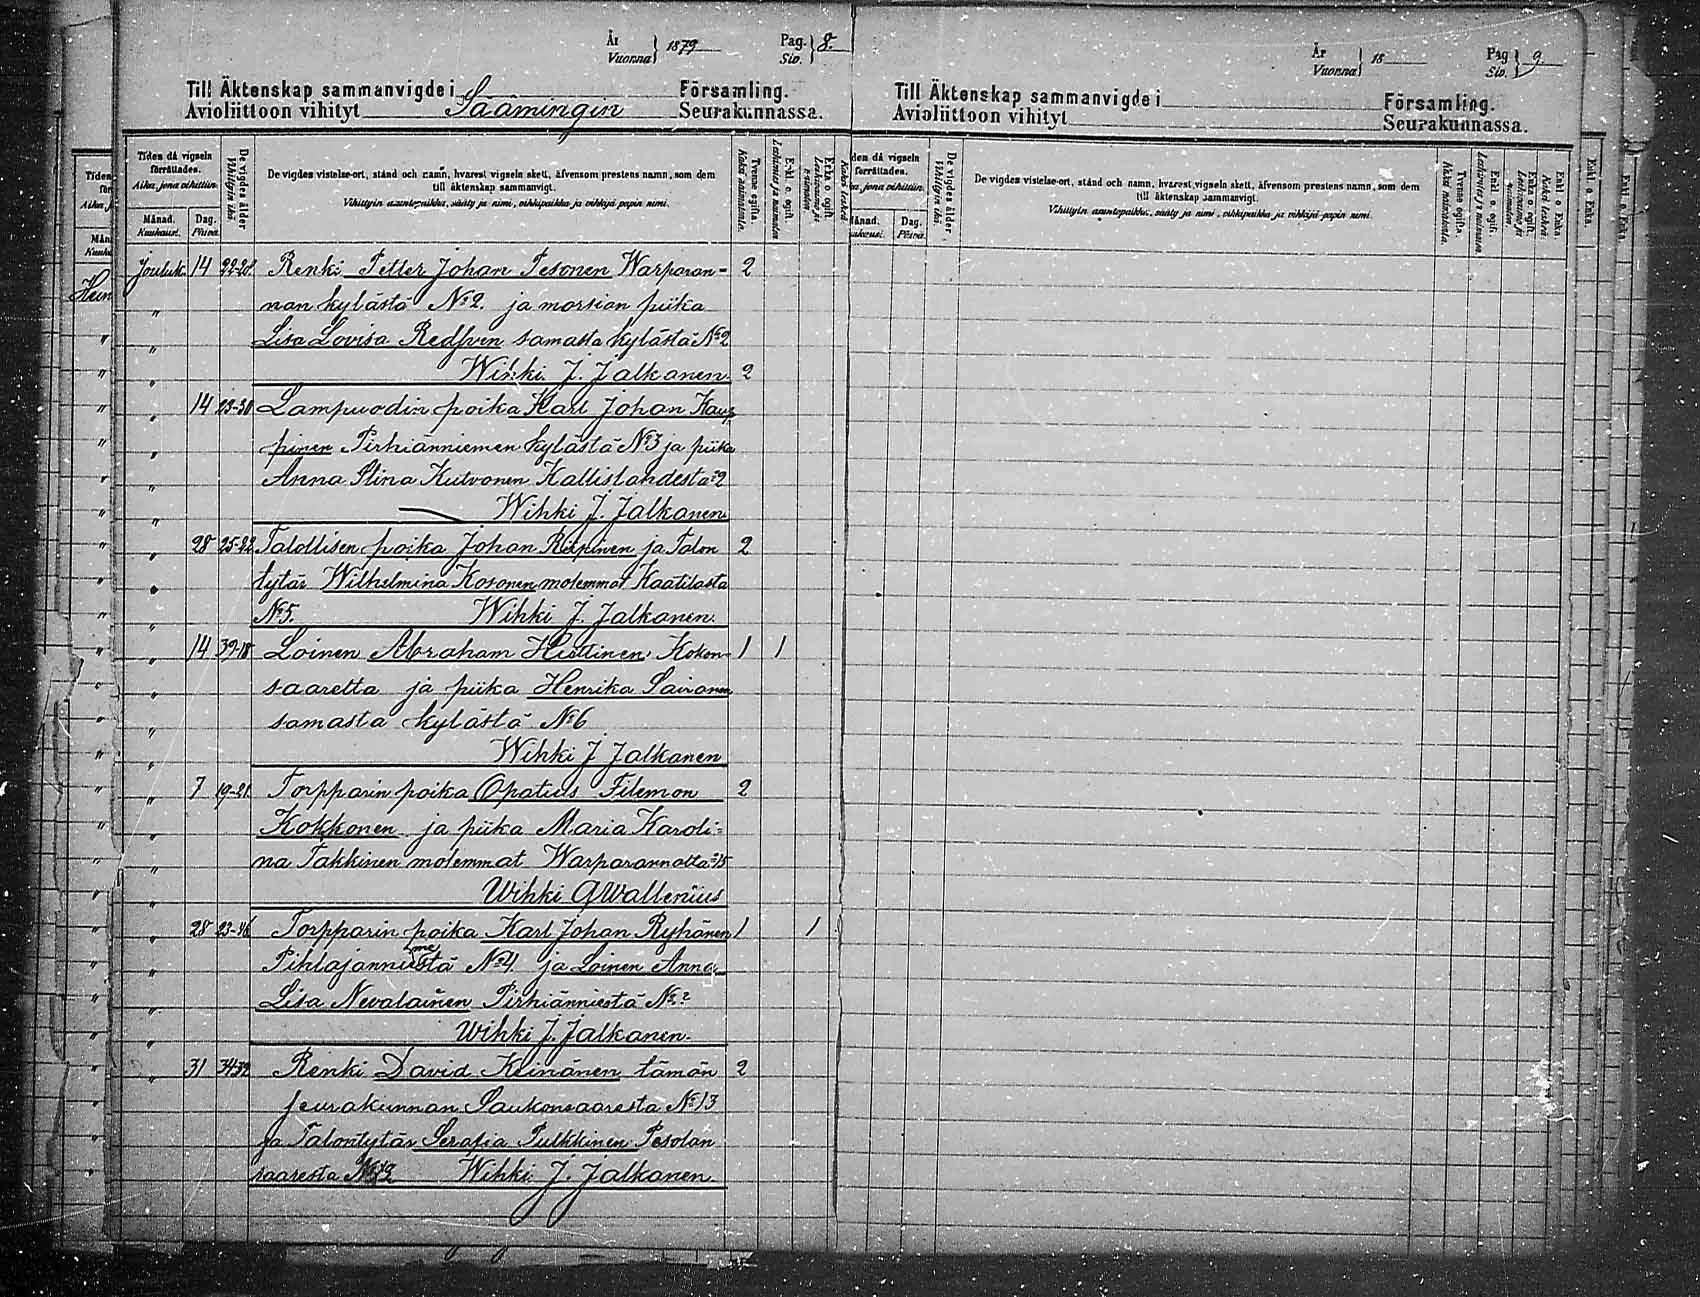 År
Vuonna } 1879
Pag.
Siv. } 8.
Till Äktenskap sammanvigde i
Avioliittoon vihityt
Säämingin
Församling.
Seurakunnassa.
Tiden då vigseln förrättades.
Aika, jona vihittiin.
Månad.
Kuukausi.
Dag.
Päivä.
De vigdes ålder
Vihittyin ikä.
De vigdes vistelse-ort, stånd och namn, hvarest vigseln skett, äfvensom prestens namn, som dem
till äktenskap sammanvigt.
Vihittyin asuntopaikka, sääty ja nimi, vihkipaikka ja vihkijä-papin nimi.
Tvenne ogifta.
Enkl. o. ogift.
Leskimies ja naimaton
Enka o. ogift.
Jouluk. 14 22-28 Renki Petter Johan Pesonen Warparan= 2
" nan kylästä No 2. ja morsian piika
" Lisa Lovisa Redsven samasta kylästä No 2
" Wihki J. Jalkanen 2
" 14 23-30 Lampuodin poika Karl Johan Kaup
" pinen Pirhiänniemen kylästä No 3 ja piika
" Anna Stina Kutvonen Kallislahdesta 2
" Wihki J. Jalkanen
" 28 25-22 Talollisen poika Johan Reipinen ja Talon 2
" tytär Wilhelmina Kosonen molemmat Kaatilasta
" No 5. Wihki J. Jalkanen.
" 14 39-18 Loinen Abraham Hiettinen Kokon- 1 1
" saaretta ja piika Henrika Sairanen
" samasta kylästä No 6
" Wihki J Jalkanen
" 7 19-21 Torpparin poika Opatus Filemon 2
" Kokkonen ja piika Maria Karoli=
" na Takkinen molemmat Warparannalta 15
" Wihki G Wallenius
" 28 23-46 Torpparin poika Karl Johan Ryhänen 1 1
" Pihlajanniemestä No 4. ja Loinen Anna
" Lisa Nevalainen Pirhiänniestä No 2
" Wihki J. Jalkanen.
" 31 34 32 Renki David Keinänen tämän 2
" seurakunnan Saukonsaaresta No 13
" ja Talontytär Serafia Pulkkinen Pesolan
" saaresta No 2 Wihki J. Jalkanen.
År
Vuonna } 18
Pag
Siv. } 9.
Till Äktenskap sammanvigde i
Avioliittoon vihityt
Församling.
Seurakunnassa.
den då vigseln
förrättades.
a, jona vihittiin.
Månad.
Dag.
Päivä.
De vigdes ålder
Vihittyin ikä.
De vigdes vistelse-ort, stånd och namn, hvarest vigseln skett, äfvensom prestens namn, som dem
till äktenskap sammanvigt.
Vihittyin asuntopaikka, sääty ja nimi, vihkipaikka ja vihkijä-papin nimi.
Tvenne ogifta.
Kaksi naimatonta.
Enkl. o. ogift.
Leskimies ja naimaton
Enka o. ogift.
Enkl o Enka.
Kaksi leskeä